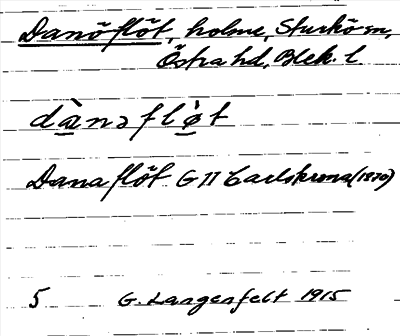 Danöflöt, holme, Sturkö sn,
Östra hd, Blek. l.
dànəflø̀t
Dana flöt G II Carlskrona (1870)
5 G. Langenfelt 1915